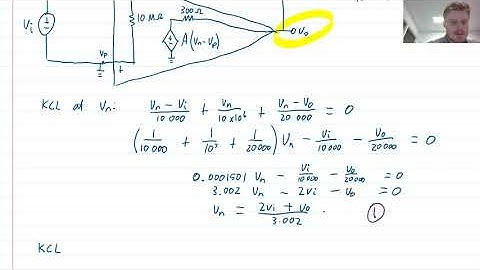 300Ω
10 MΩ
Vi
Vp
A(Vn-Vp)
Vo
+
KCL at Vn: Vn - Vi / 10 000 + Vn / 10 x10⁶ + Vn - Vo / 20 000 = 0
(1/10 000 + 1/10⁷ + 1/20000) Vn - Vi/10000 - Vo/20000 = 0
0.0001501 Vn - Vi/10000 - Vo/20000 = 0
3.002 Vn - 2Vi - Vo = 0
Vn = 2Vi + Vo / 3.002 . ①
KCL